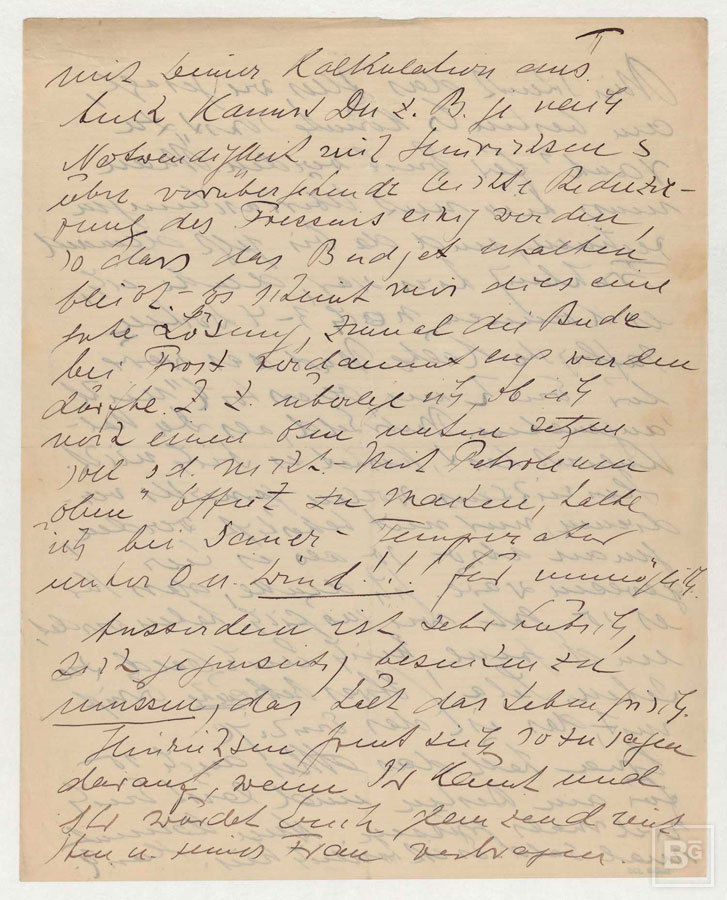 II
mit Deiner Kalkulation aus.
Auch kannst Du z. B. je nach
Notwendigkeit mit Hinrichsens
über vorübergehende leichte Reduzie-
rung des Fressens einig werden,
so dass das Budget erhalten
bleibt. – Es scheint mir dies eine
gute Lösung, zumal die Bude
bei Frost verdammt eng werden
dürfte. Z. Z. überlege ich ob ich
noch einen Ofen unten setzen
soll od. nicht. – Mit Petroleum
oben" öffiet zu machen, halte
ich bei Dauer-Temperatur
unter 0 u. Wind!!! für unmöglich.
Ausserdem ist sehr hübsch,
sich gegenseitig besuchen zu
müssen, das hält das Leben frisch.
Hinrichsen freut sich sozusagen
darauf, wenn Ihr kommt und
Ihr würdet Euch glänzend mit
ihm u. seiner Frau vertragen.
BG